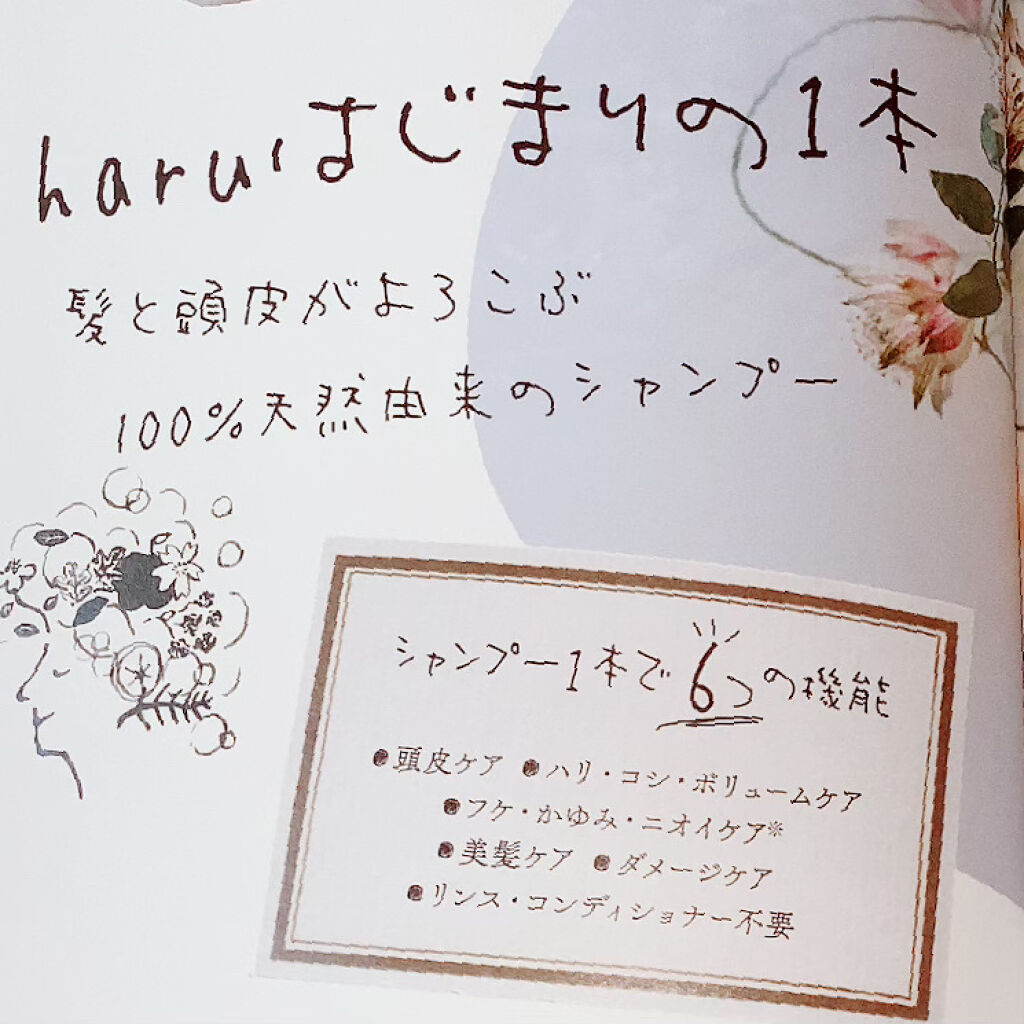 haru はじまりの1本
髪と頭皮がよろこぶ
100%天然由来のシャンプー
シャンプー1本で6つの機能
●頭皮ケア ●ハリ・コシ・ボリュームケア
●フケ・かゆみ・ニオイケア※
●美髪ケア ●ダメージケア
●リンス・コンディショナー不要